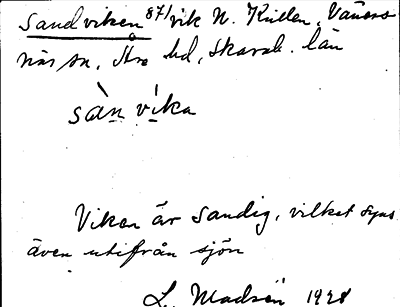 Sandviken 871 vik N. Kullen, Väners
näs sn, Åse hd, Skarab. län
sàn vika
Viken är sandig, vilket syns
även utifrån sjön
L. Madsén 1928